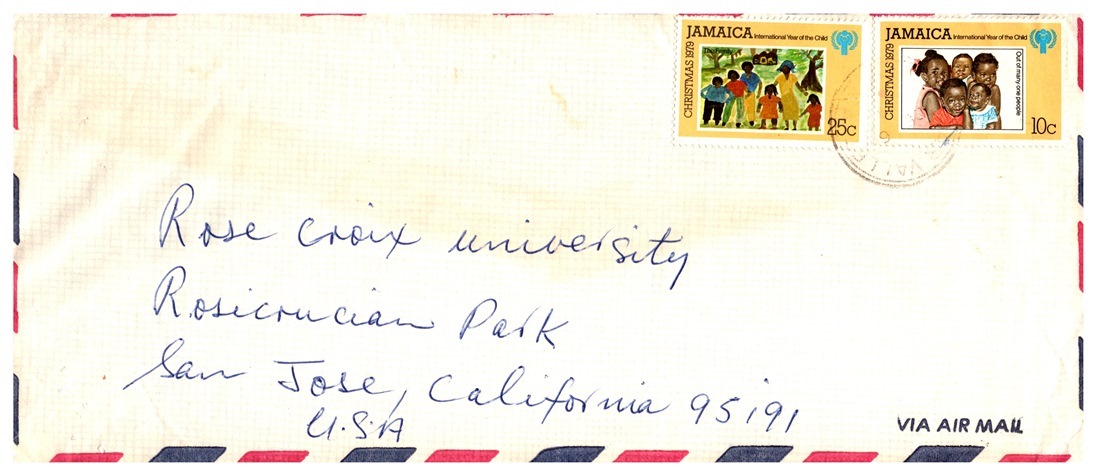 JAMAICA International Year of the Child
CHRISTMAS 1979
The Family
25c
JAMAICA International Year of the Child
CHRISTMAS 1979
Out of many one people
10c
Rose Croix University
Rosicrucian Park
San Jose, California 95191
U.S.A
VIA AIR MAIL